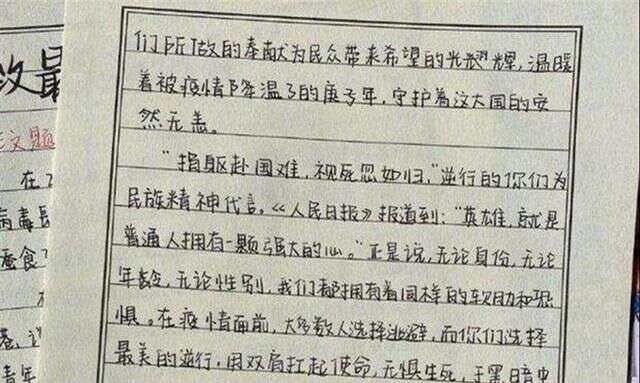 改最
文题
在
病毒
蚕食了
们所做的奉献为民众带来希望的光耀辉,温暖
着被疫情降温了的庚子年,守护着泱大国的安
然无恙。
"捐躯赴国难,视死忽如归,"逆行的你们为
民族精神代言。《人民日报》报道到:"英雄,就是
普通人拥有一颗强大的心。"正是说,无论身份,无论
年龄,无论性别,我们都拥有着同样的软肋和恐
惧。在疫情面前,大多数人选择逃避,而你们选择
最美的逆行,用双肩扛起使命,无惧生死,于黑暗中